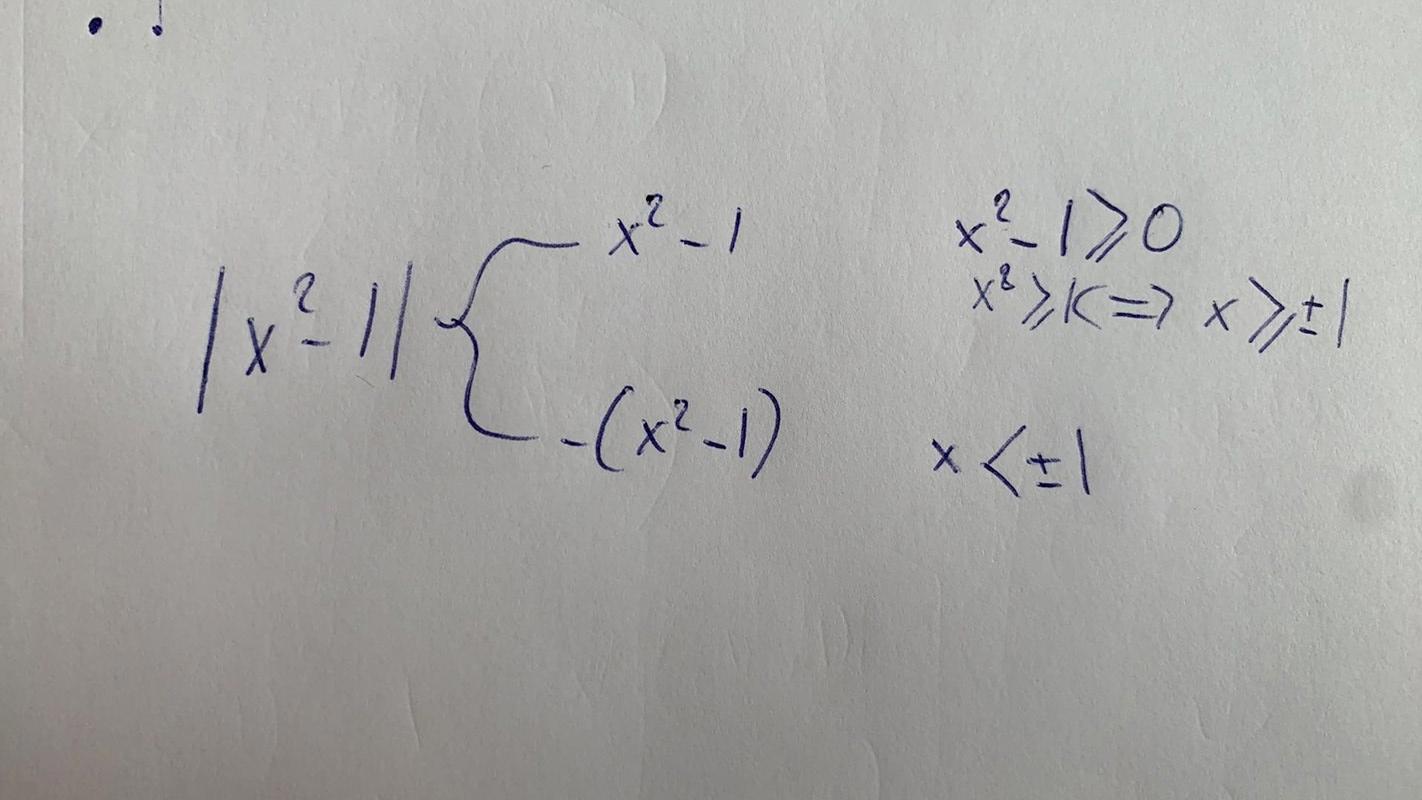 |x²-1| { x²-1 x²-1⩾0
x²⩾1<=> x⩾±1
-(x²-1) x<±1